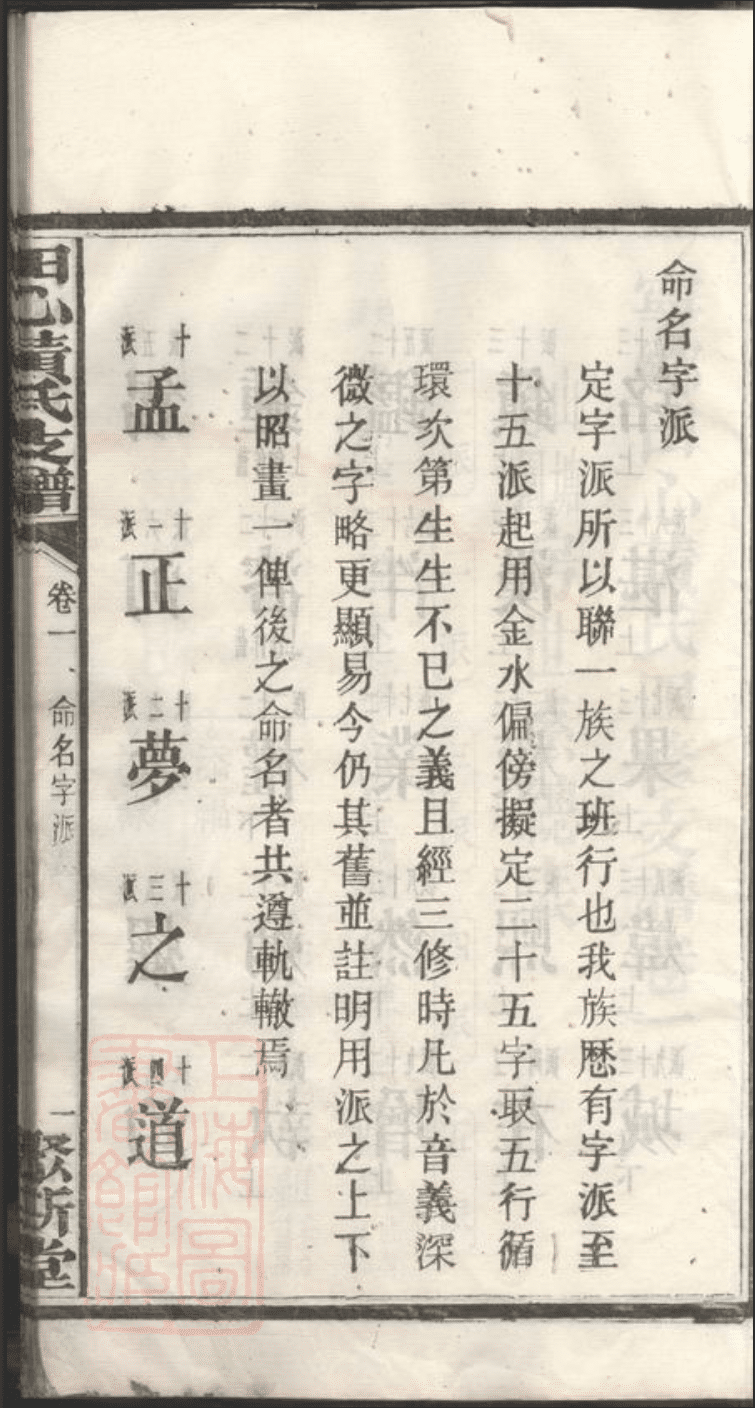 命名字派
定字派所以聯一族之班行也我族歷有字派至
十五派起用金水偏傍擬定二十五字取五行循
環次第生生不已之義且經三修時凡於音義深
微之字略更顯易今仍其舊並註明用派之上下
以昭畫一俾後之命名者共遵軌轍焉
十派 孟 十一派 正 十二派 夢 十三派 之 十四派 道
田心黄氏支譜 卷一、命名字派 一 聚斯堂
上海圖書館藏